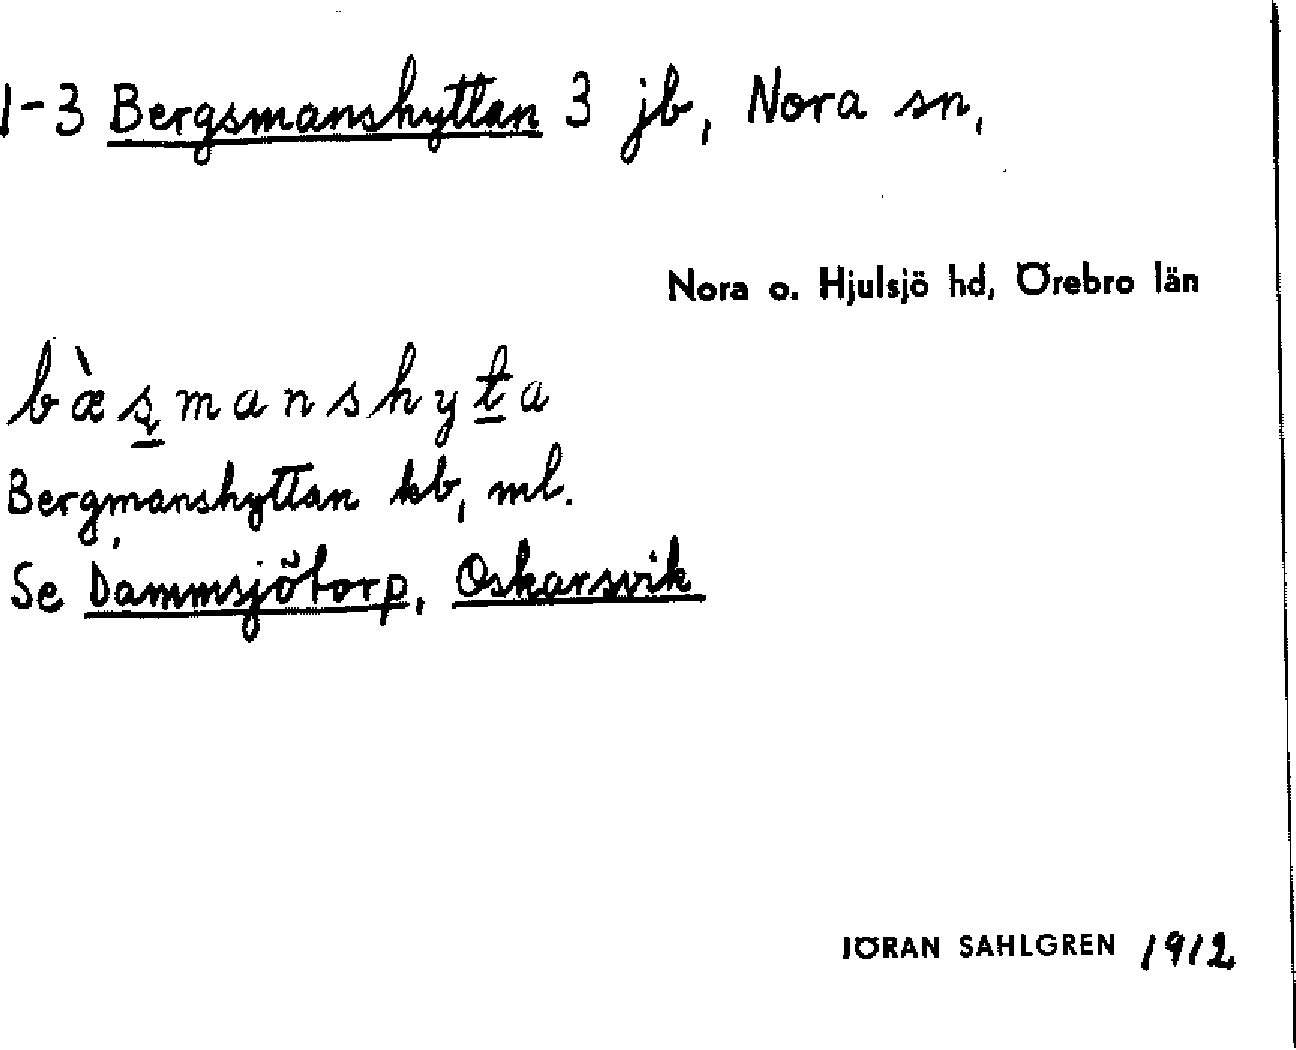 1-3 Bergsmanshyttan 3 jb, Nora sn,
Nora o. Hjulsjö hd, Örebro län
bæ̀s̱manshyṯa
Bergmanshyttan kb, ml.
Se Dammsjötorp, Oskarsvik
JÖRAN SAHLGREN 1912